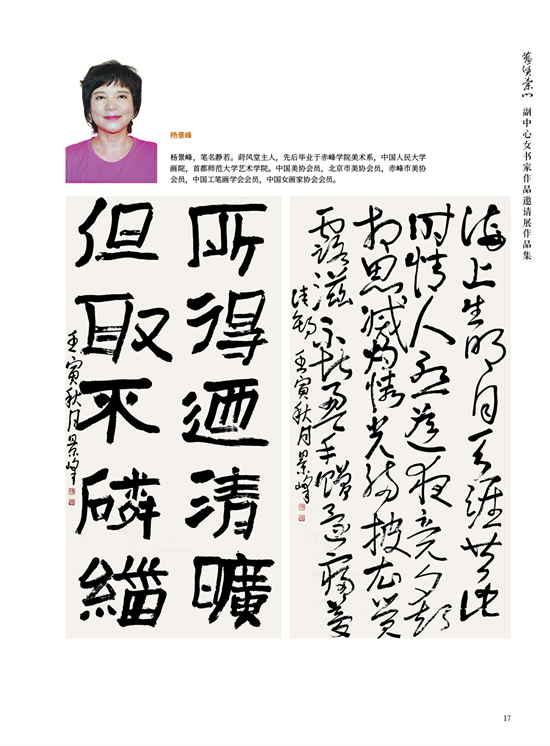 副中心女书家作品邀请展作品集
杨景峰
杨景峰，笔名静若。莳风堂主人，先后毕业于赤峰学院美术系，中国人民大学
画院，首都师范大学艺术学院。中国美协会员，北京市美协会员，赤峰市美协
会员，中国工笔画学会会员，中国女画家协会会员。
所得迺清曠
但取不磷緇
壬寅秋月景峰
海上生明月天涯共此
时情人怨遥夜竟夕起
相思滅烛憐光满披衣觉
露滋不堪盈手赠还寝梦
佳期 壬寅秋月景峰
17